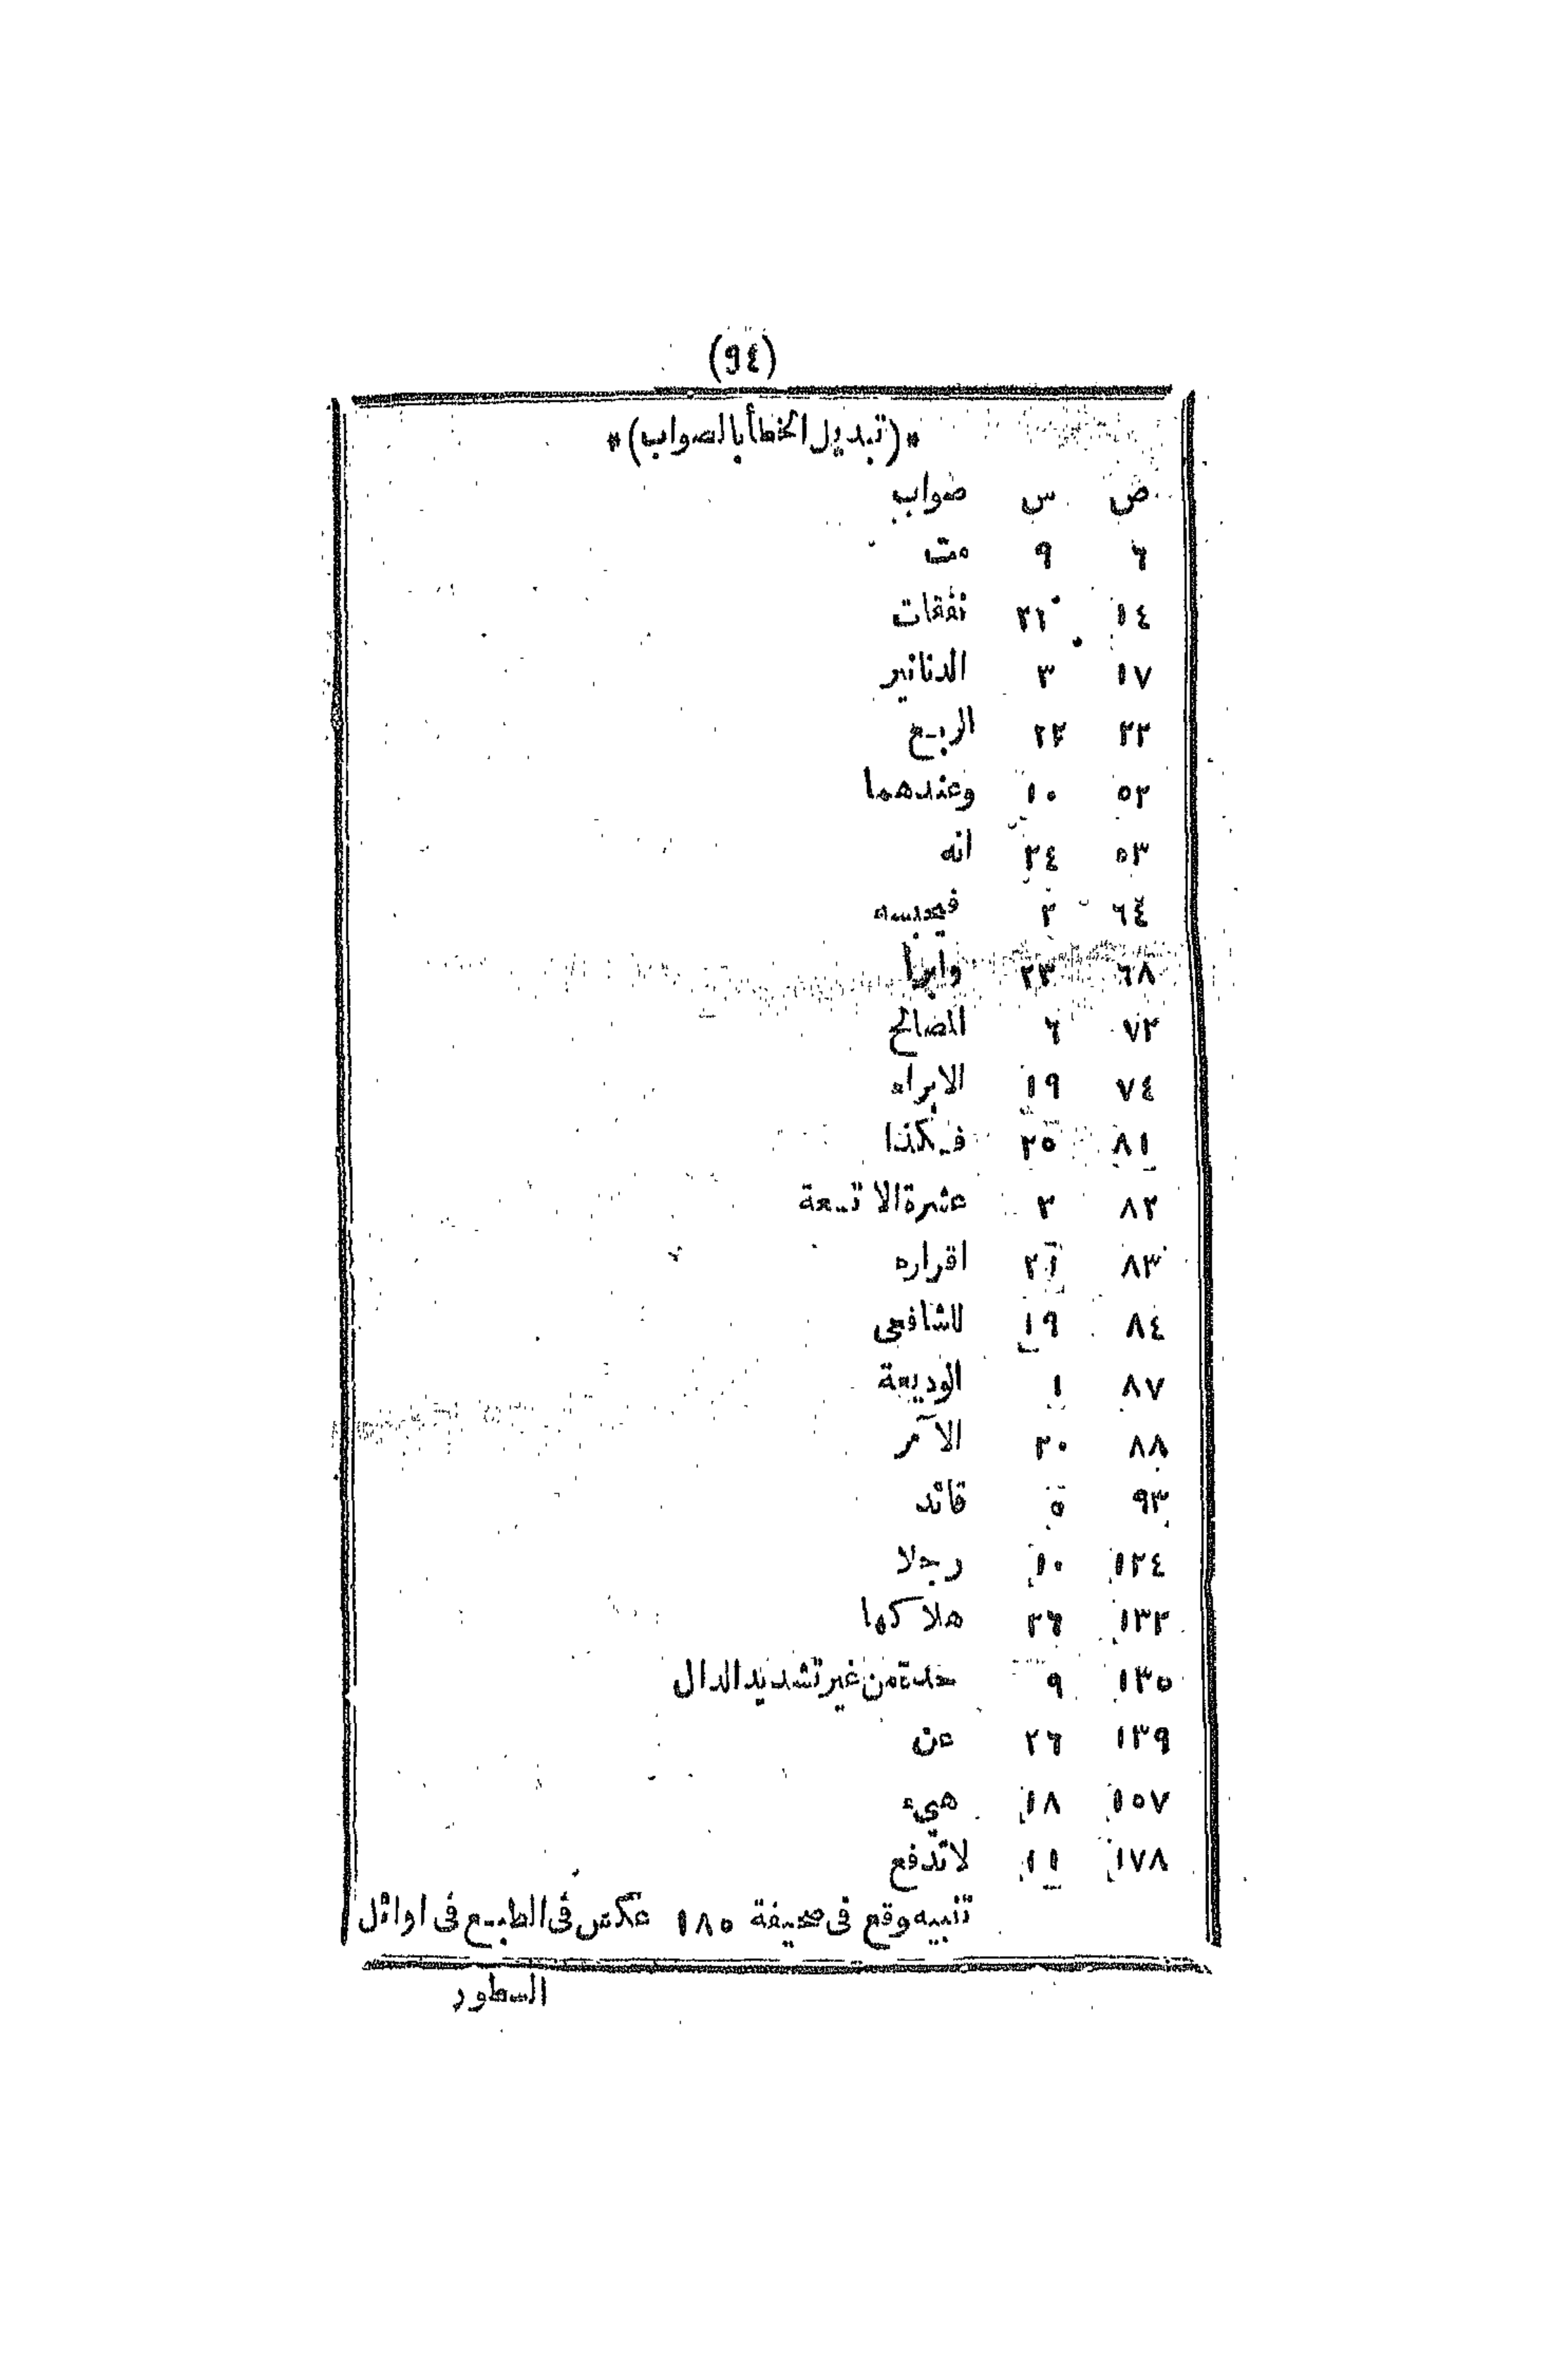 (٩٤)
*(تبديل الخطأ بالصواب)*
ص س صواب
٦ ٩ مت
١٤ ٢١ نفقات
١٧ ٣ الدنانير
٢٢ ٢٢ الربع
٥٢ ١٠ وعندهما
٥٣ ٢٤ انه
٦٤ ٢ فيحبسه
٦٨ ٢٣ وابرأ
٧٢ ٦ المصالح
٧٤ ١٩ الابراء
٨١ ٢٥ فكذا
٨٢ ٢ عشرة الا تسعة
٨٣ ٢١ اقراره
٨٤ ١٩ للشافعى
٨٧ ١ الوديعة
٨٨ ٢٠ الآمر
٩٣ ٥ قائد
١٢٤ ١٠ رجلا
١٣٢ ٢٦ هلاكها
١٣٥ ٩ حدة من غير تشديد الدال
١٣٩ ٢٦ عن
١٥٧ ١٨ هيء
١٧٨ ١١ لا تدفع
تنبيه وقع فى صحيفة ١٨٥ عكس فى الطبع فى اوائل
السطور